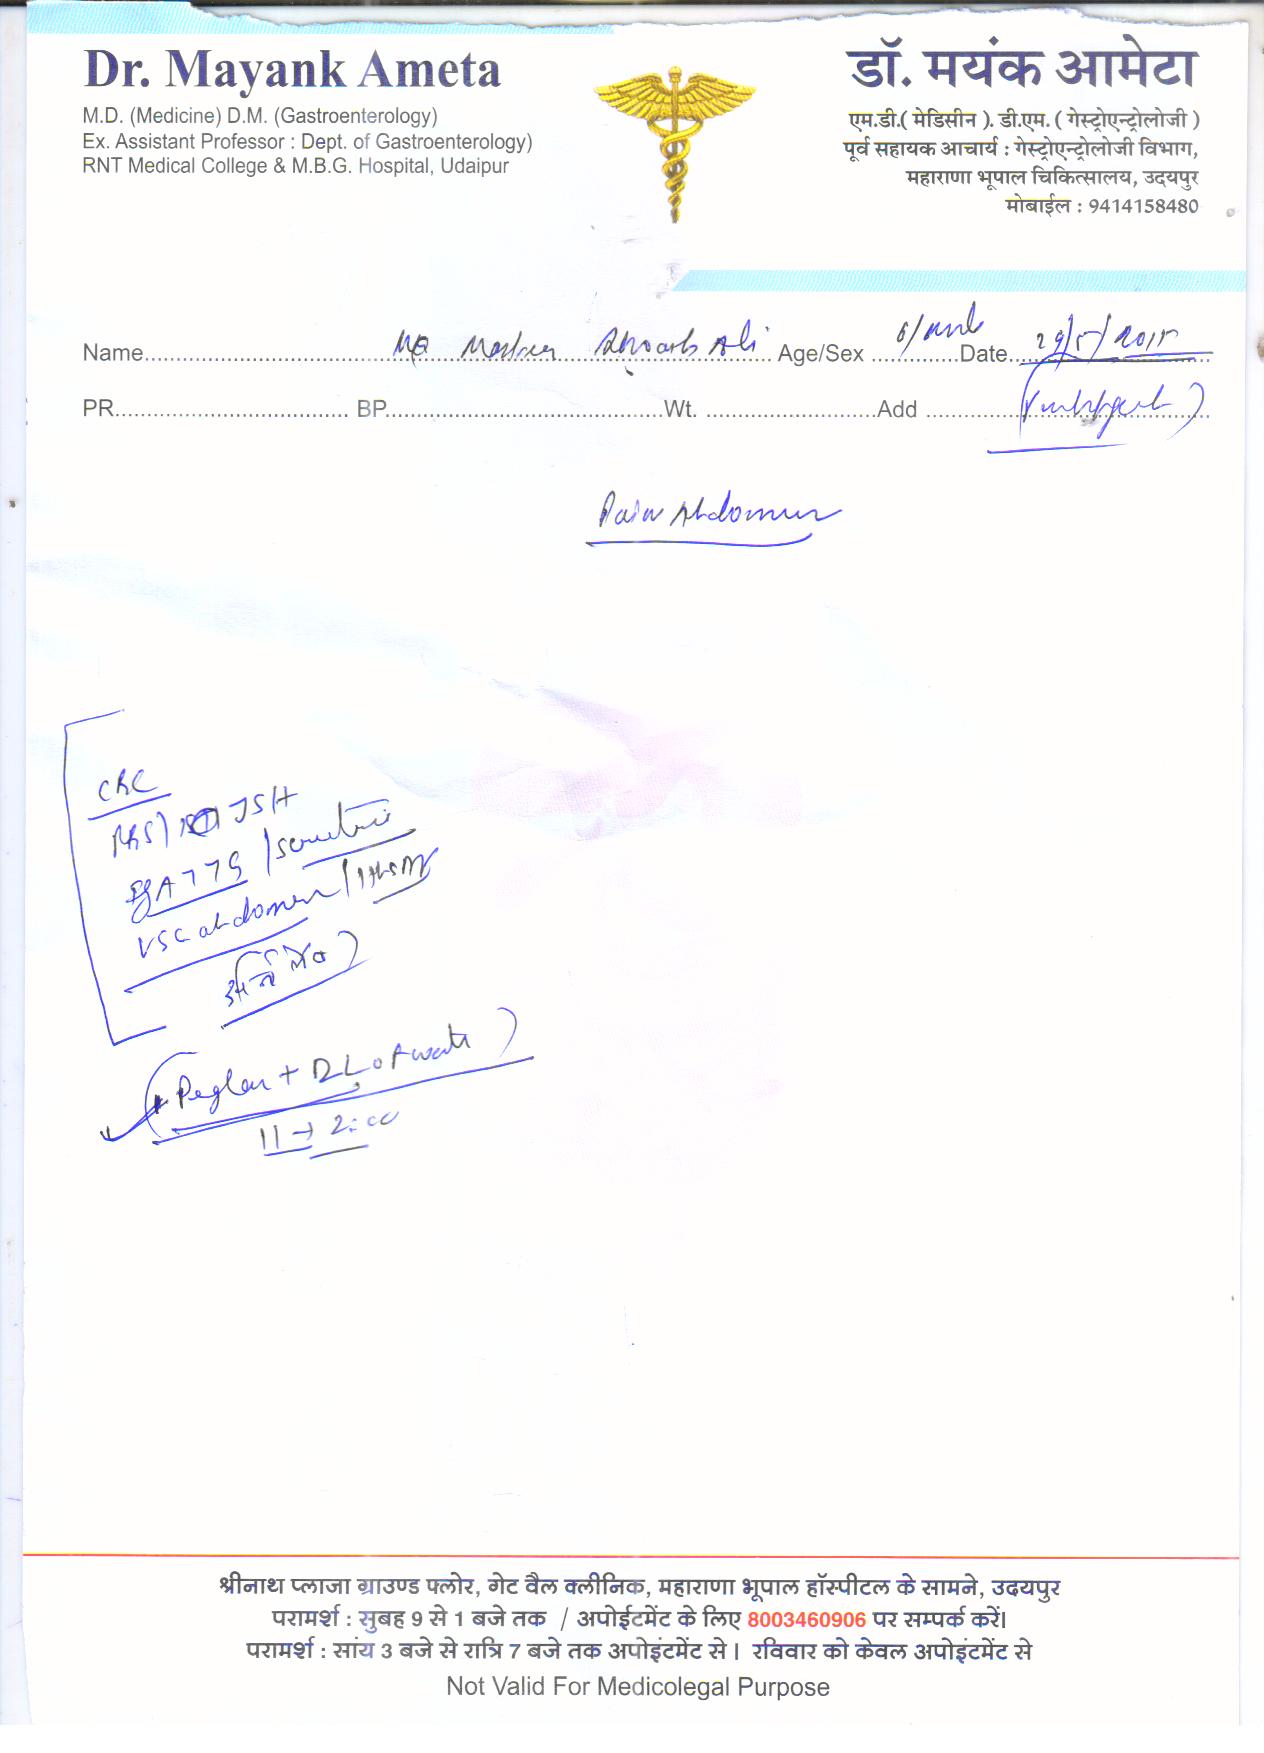 Dr. Mayank Ameta
M.D. (Medicine) D.M. (Gastroenterology)
Ex. Assistant Professor : Dept. of Gastroenterology)
RNT Medical College & M.B.G. Hospital, Udaipur
डॉ. मयंक आमेटा
एम.डी.( मेडिसीन ). डी.एम. ( गेस्ट्रोएन्ट्रोलोजी )
पूर्व सहायक आचार्य : गेस्ट्रोएन्ट्रोलोजी विभाग,
महाराणा भूपाल चिकित्सालय, उदयपुर
मोबाईल : 9414158480
Name Ali Age/Sex 6/ Date 29/5/2015
PR BP Wt. Add
Pain Abdomen
CBC
TSH
IgA TTG /
USG abdomen /
Peglec + 2L of water
11 → 2:00
श्रीनाथ प्लाजा ग्राउण्ड फ्लोर, गेट वैल क्लीनिक, महाराणा भूपाल हॉस्पीटल के सामने, उदयपुर
परामर्श : सुबह 9 से 1 बजे तक / अपोईटमेंट के लिए 8003460906 पर सम्पर्क करें।
परामर्श : सांय 3 बजे से रात्रि 7 बजे तक अपोइंटमेंट से । रविवार को केवल अपोइंटमेंट से
Not Valid For Medicolegal Purpose